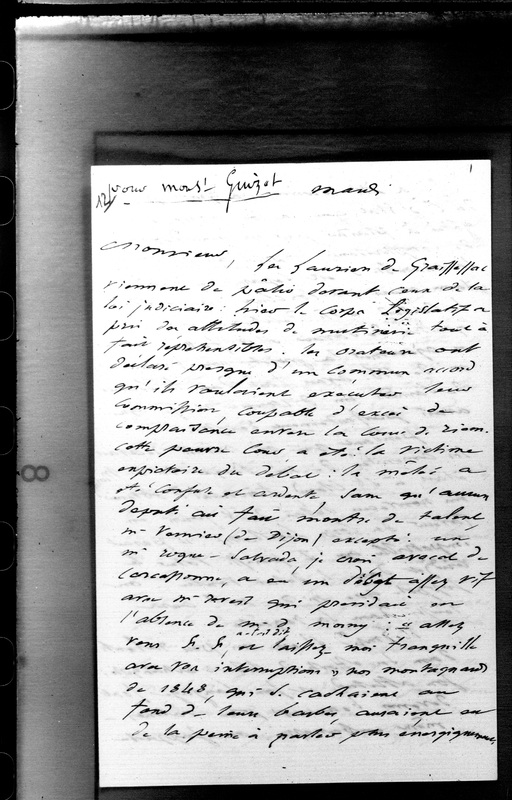 pour monsr Guizot mardi
Monsieur, les lauriers de Graissessac
viennent de pâlir devant ceux de la
loi judiciaire : hier le Corps Législatif a
pris des attitudes de mutinerie tout à
fait repréhensibles. les orateurs ont
déclaré presque d'un commun accord
qu'ils voulaient exécuter leur
Commission, coupable d'excès de
complaisance envers la Cour de riom.
cette pauvre Cour a été la victime
expiatoire du débat : la mêlée a
été confuse et ardente, sans qu'aucun
député ait fait montre de talent
mr Vernier (de Dijon) excepté. un
mr roque-Salvada, je crois avocat de
Carcassonne, a eu un débat assez vif
avec mr qui présidait en
l'absence de mr de morny : « allez
vous a-t-il dit, et laissez-moi tranquille
avec vos interruptions » nos montagnards
de 1848, qui se cachaient au
fond de leurs barbes auraient eu
de la peine à parler plus énergiquement,
1
8